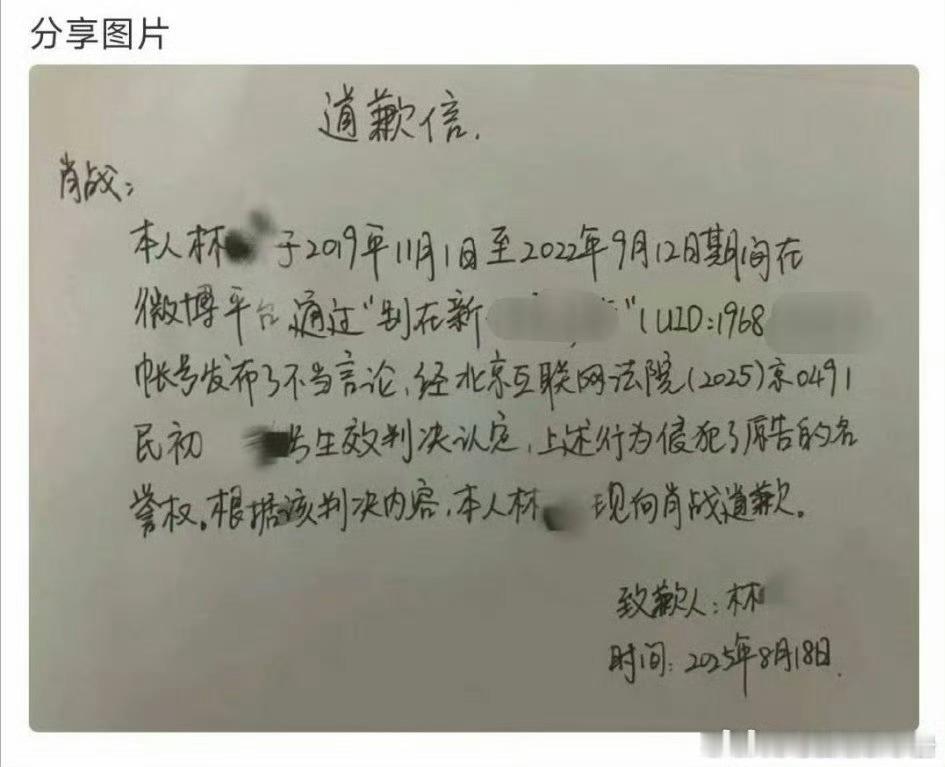 分享图片
道歉信.
肖战:
本人林 于2019年11月1日至2022年9月12日期间在
微博平台通过“别在新 ”(UID:1968
帐号发布了不当言论,经北京互联网法院(2025)京0491
民初 号生效判决认定,上述行为侵犯了原告的名
誉权。根据该判决内容,本人林 现向肖战道歉。
致歉人:林
时间:2025年8月18日.